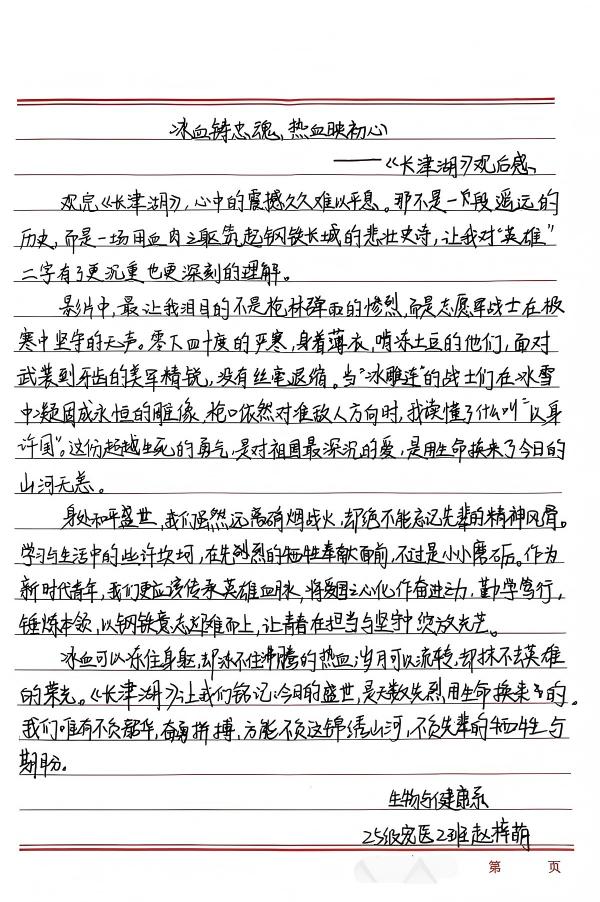 冰血铸忠魂,热血映初心
——《长津湖》观后感
观完《长津湖》,心中的震撼久久难以平息。那不是一段遥远的
历史,而是一场用血肉之躯筑起钢铁长城的悲壮史诗,让我对“英雄”
二字有了更沉重也更深刻的理解。
影片中,最让我泪目的不是枪林弹雨的惨烈,而是志愿军战士在极
寒中坚守的无声。零下四十度的严寒,身着薄衣,啃冻土豆的他们,面对
武装到牙齿的美军精锐,没有丝毫退缩。当“冰雕连”的战士们在冰雪
中凝固成永恒的雕像,枪口依然对准敌人方向时,我读懂了什么叫“以身
许国”。这份超越生死的勇气,是对祖国最深沉的爱,是用生命换来了今日的
山河无恙。
身处和平盛世,我们虽然远离硝烟战火,却绝不能忘记先辈的精神风骨。
学习与生活中的些许坎坷,在先烈烈的牺牲奉献面前,不过是小小磨砺。作为
新时代青年,我们更应该传承英雄血脉,将爱国之心化作奋进动力,勤学笃行,
锤炼本领,以钢铁意志迎难而上,让青春在担当与坚守中绽放光芒。
冰血可以冻住身躯,却冻不住沸腾的热血,岁月可以流转,却抹不去英雄
的荣光。《长津湖》让我们铭记:今日的盛世,是无数先烈用生命换来的。
我们唯有不负韶华,奋勇拼搏,方能不负这锦绣山河,不负先辈的牺牲与
期盼。
生物与健康系
25级宠医2班赵梓萌
第 页